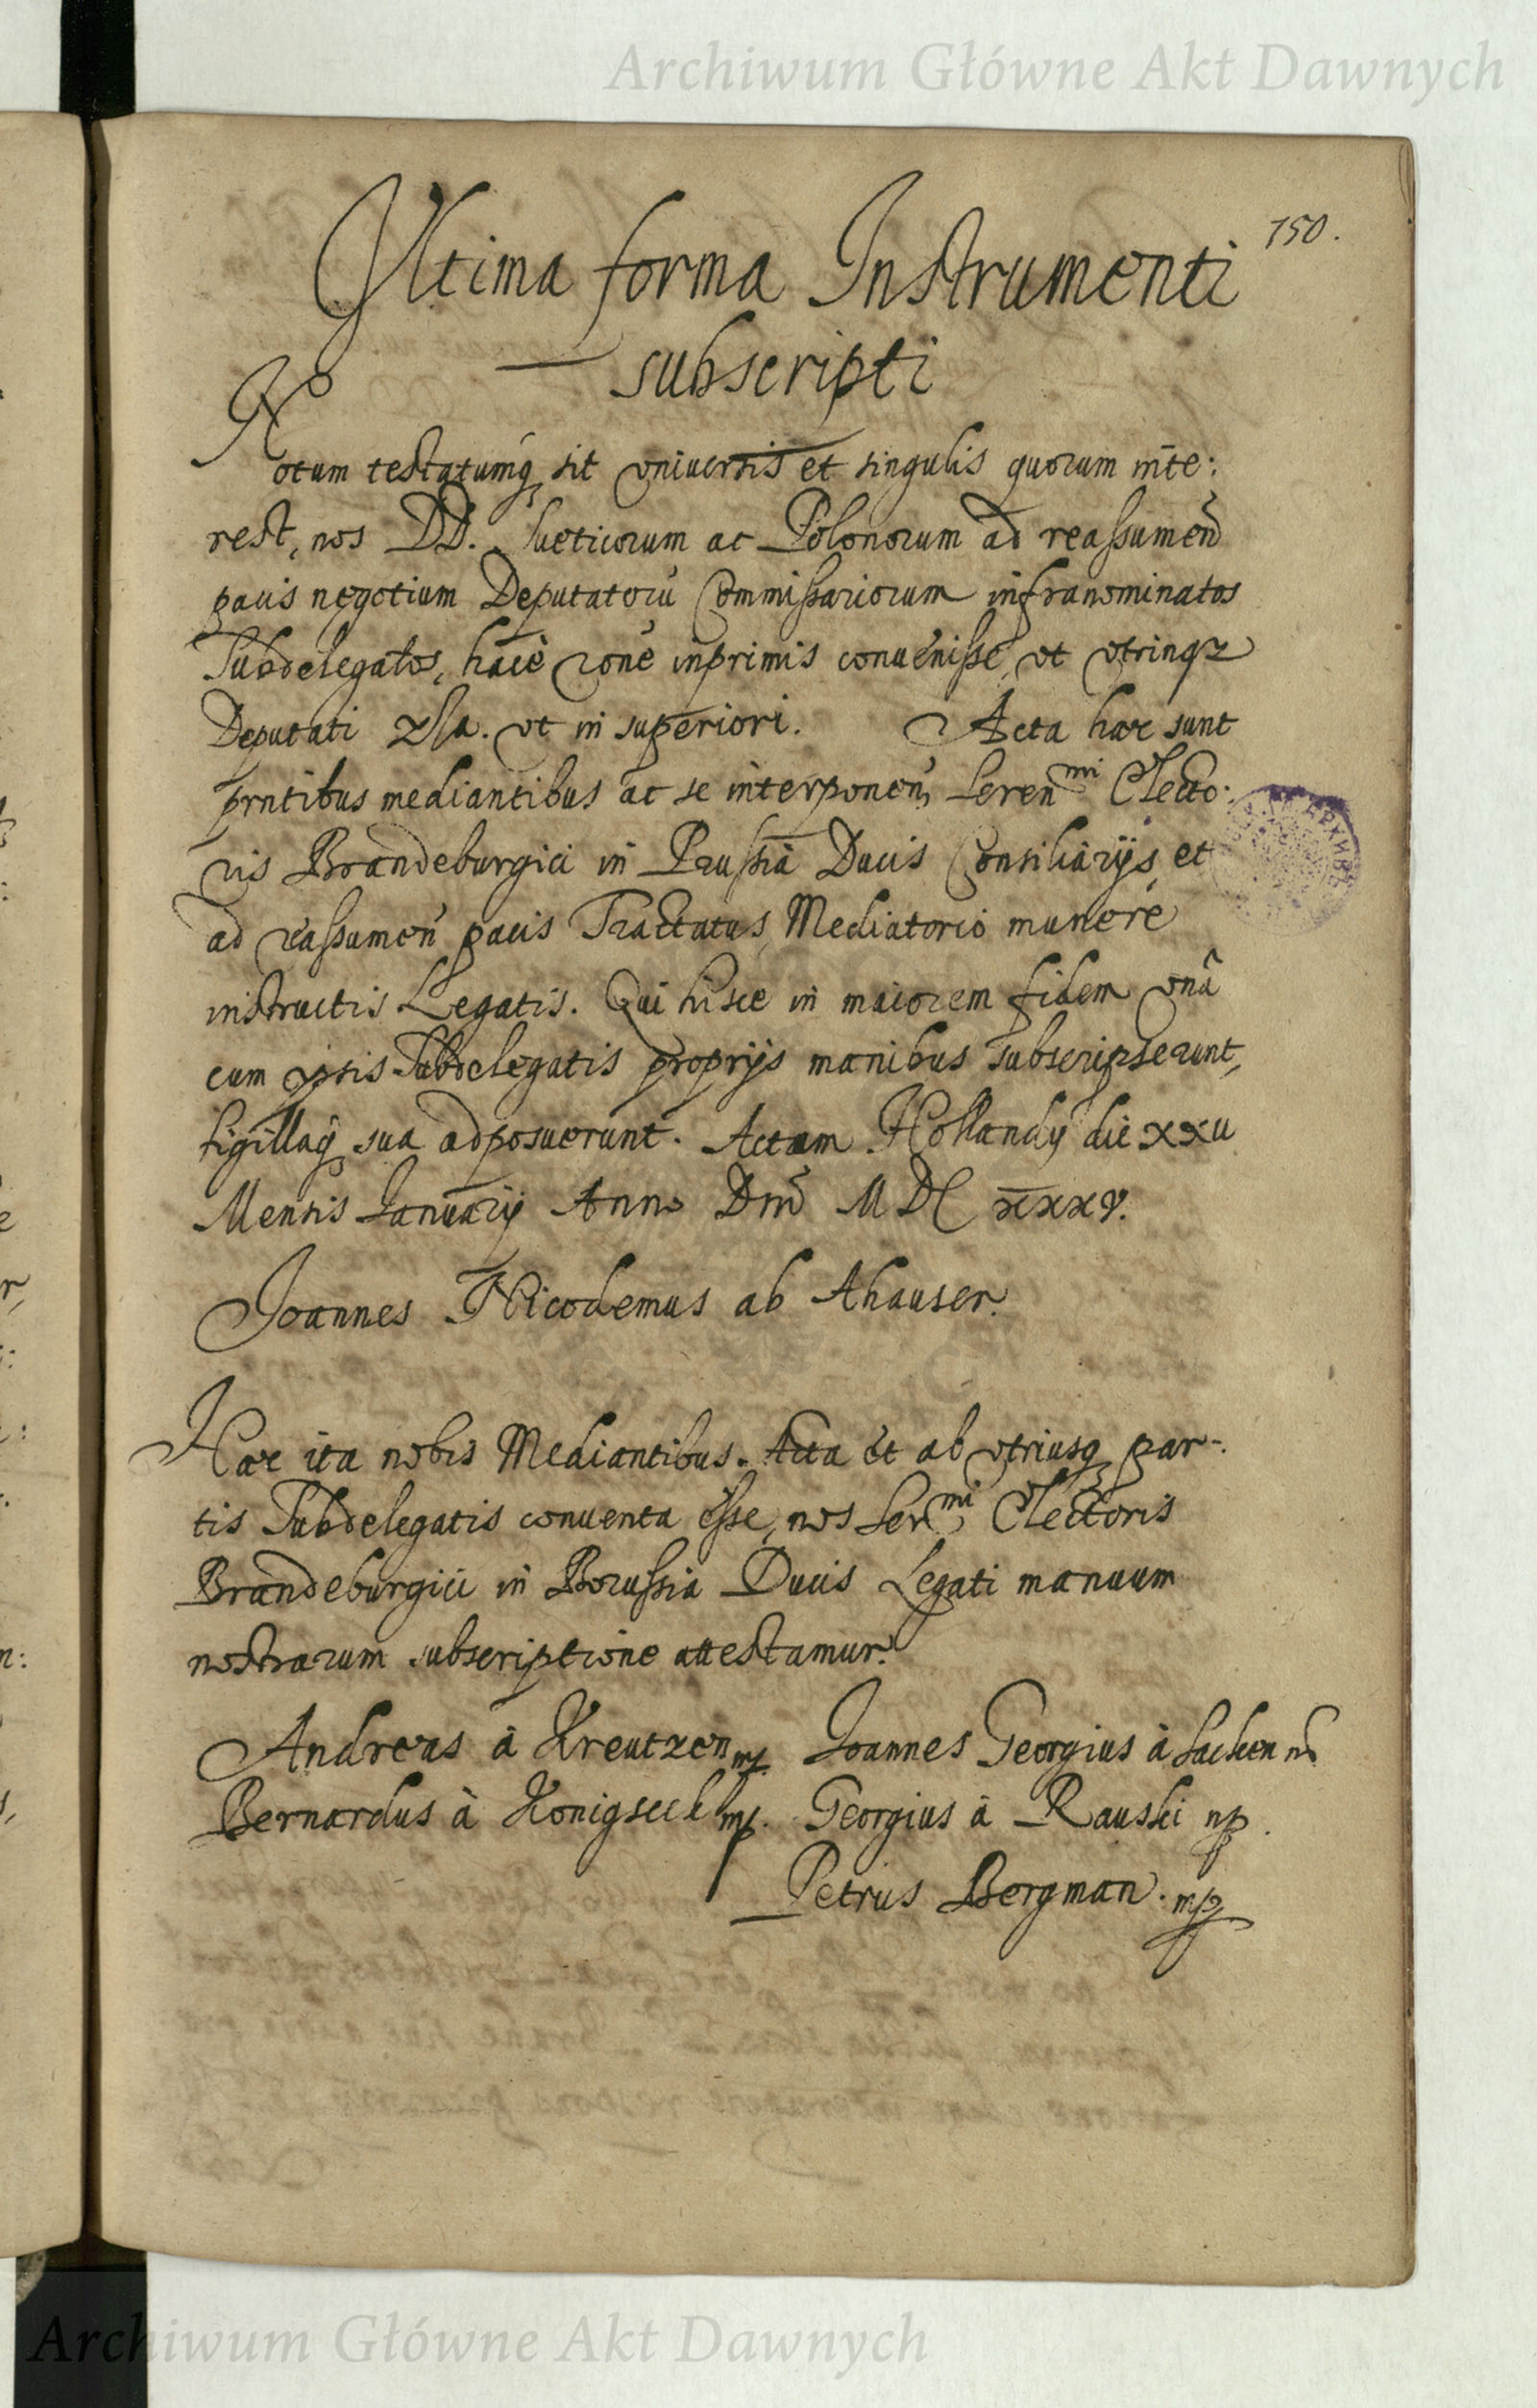 Archiwum Główne Akt Dawnych
150.
Vltima forma Instrumenti
subscripti
Notum testatumq sit vniuersis et singulis quorum inte:
rest, nos DD. Sueticorum ac Polonorum ad reassumen
pacis negotium Deputatorū Commissariorum infranominatos
Subdelegatos, hacce rone inprimis conuenisse, vt vtrinq
Deputati vt in superiori. Acta haec sunt
prntibus mediantibus ac se interponen Seren^mi Electo:
ris Brandeburgici in Prussia Ducis Consiliarijs, et
ad reassumen pacis Tractatus, Mediatorio munere
instructis Legatis. Qui hisce in maiorem fidem vnâ
cum ipsis Subdelegatis proprijs manibus subscripserunt,
sigillaq sua adposuerunt. Actum Hollandij die xxv
Mensis Ianuarij Anno Dni MDCxxxv.
Joannes Nicodemus ab Ahauser.
Haec ita nobis Mediantibus. Acta et ab vtriusq par-
tis Subdelegatis conuenta esse, nos Ser^mi Electoris
Brandeburgici in Borussia Ducis Legati manuum
nostrarum subscriptione attestamur.
Andreas à Kreutzen mp. Joannes Georgius à Sacken
Bernardus à Konigseck mp. Georgius à Rauski mp.
Petrus Bergman. mp
Archiwum Główne Akt Dawnych